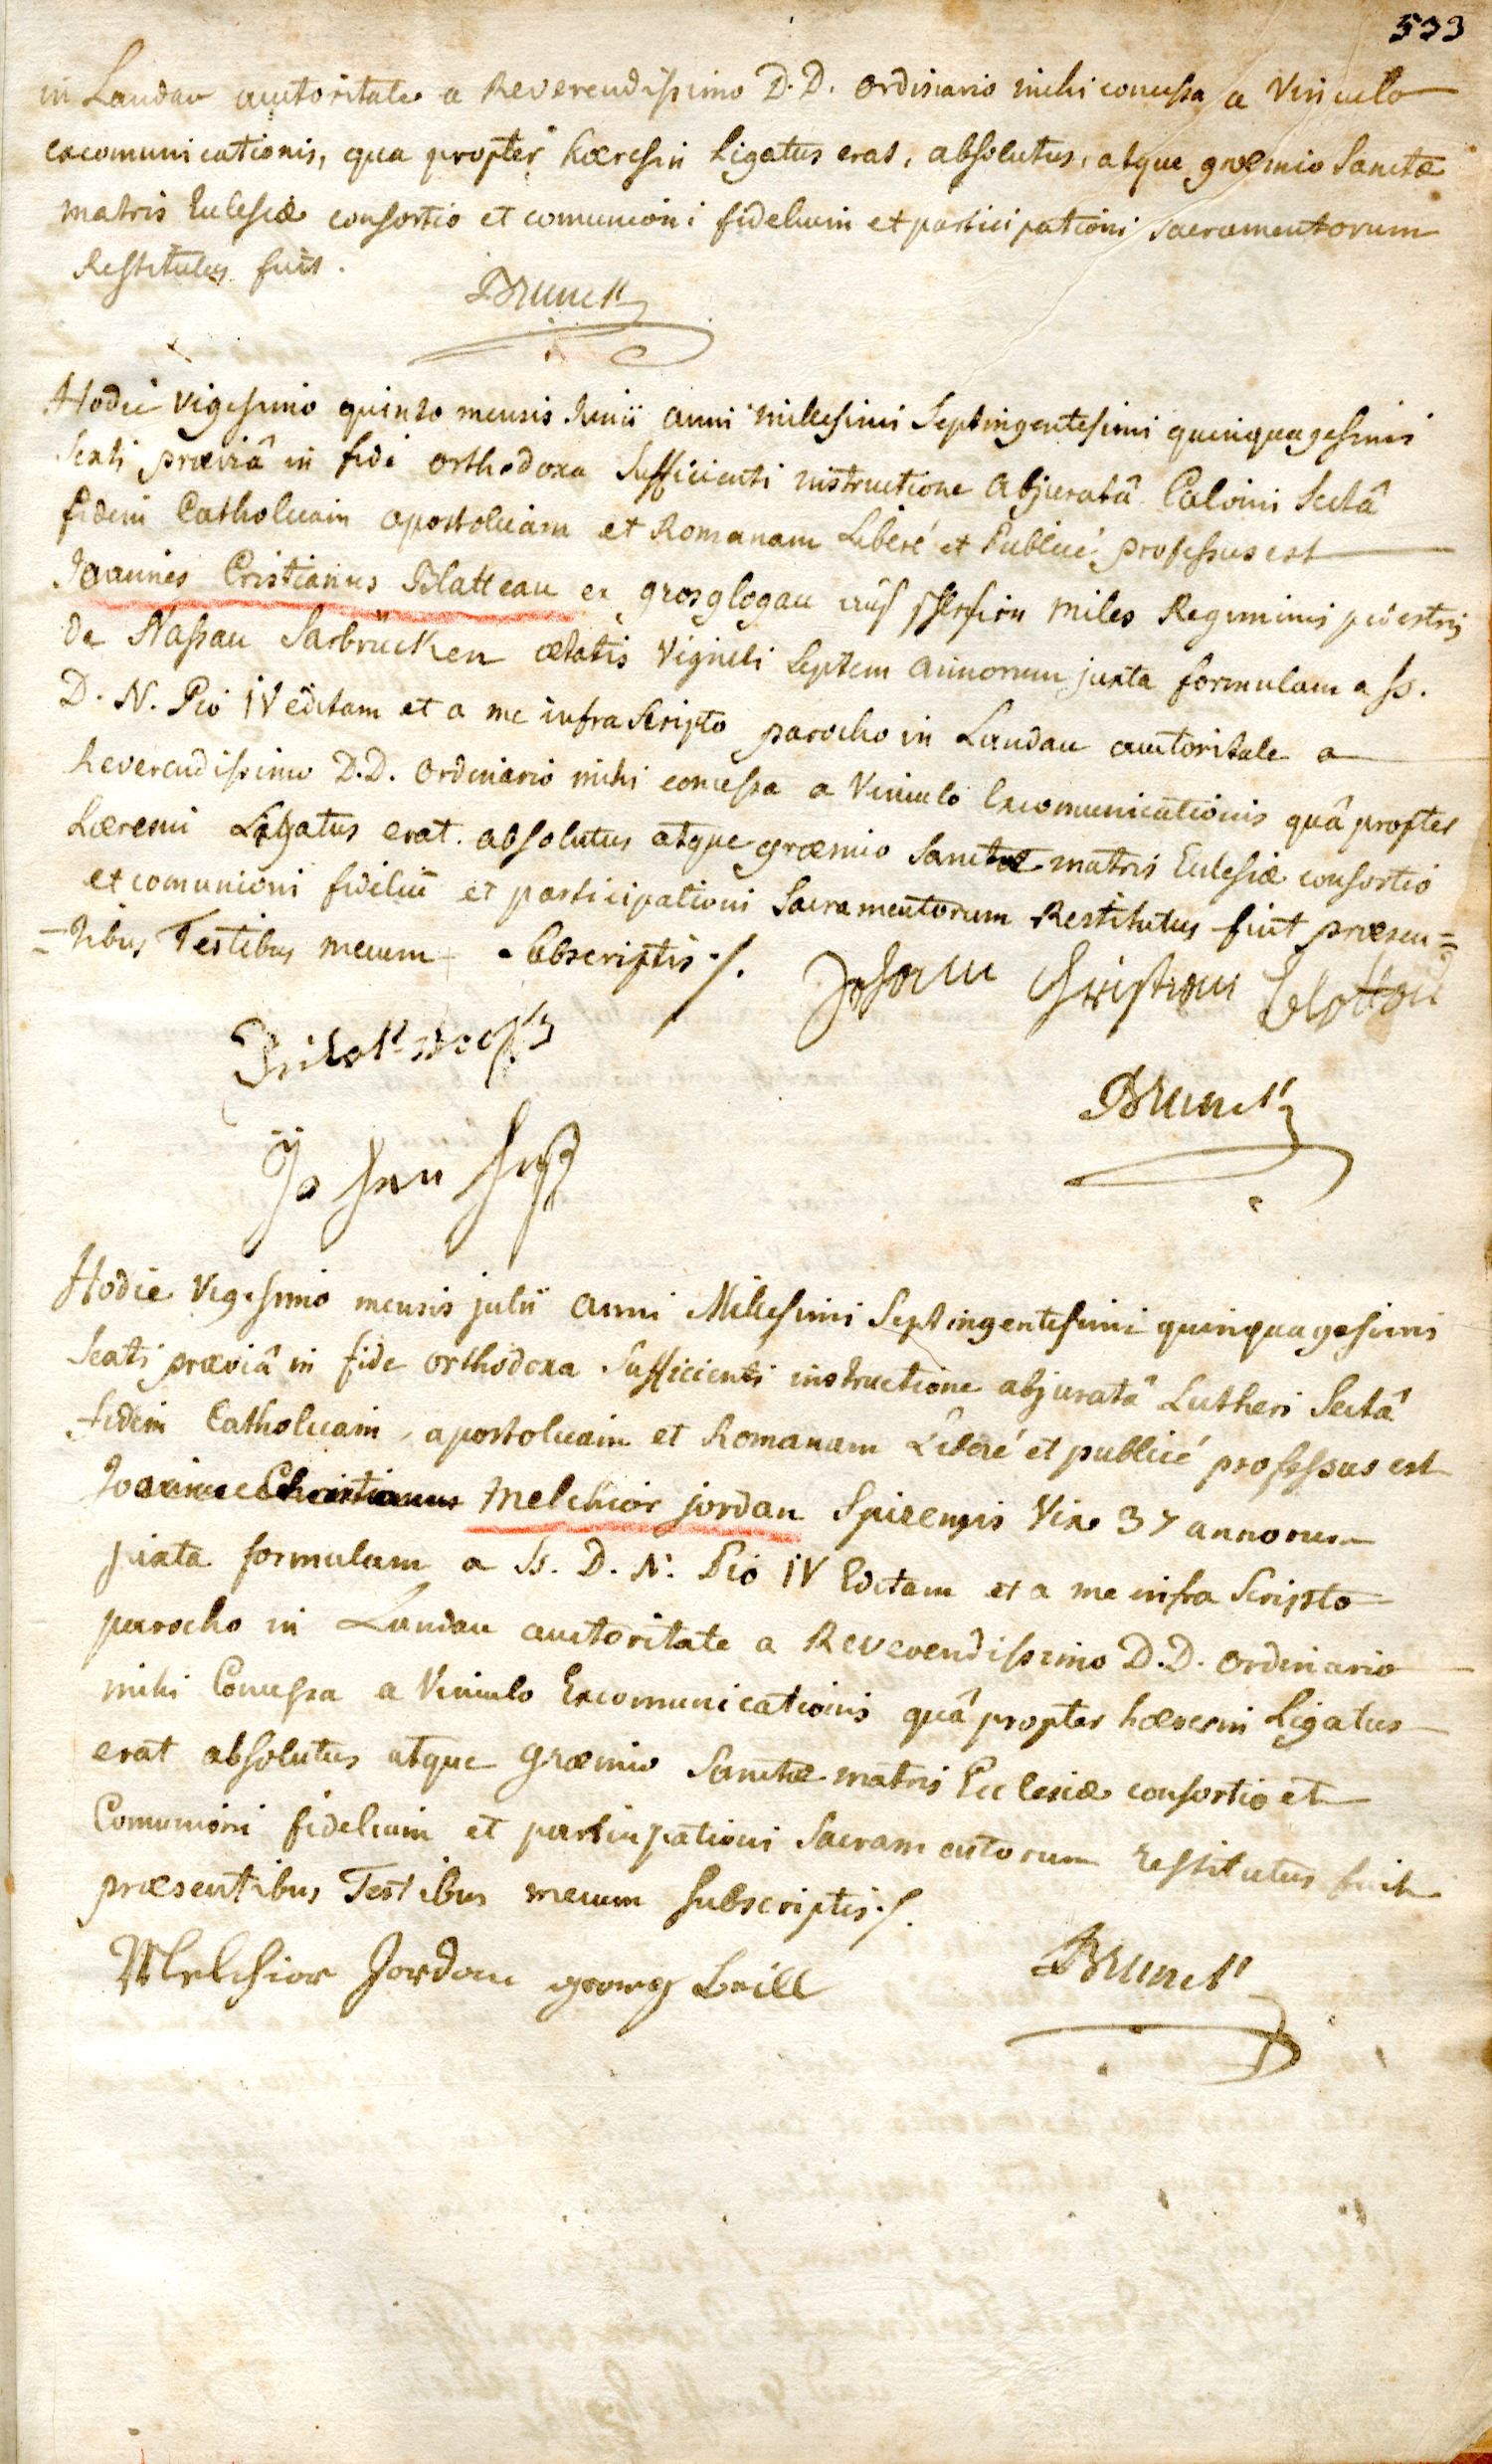 533
in Landau auctoritate a Reverendissimo D.D. Ordinario mihi concessa a Vinculo
excomunicationis, qua propter hæresin Ligatus erat, absolutus, atque græmio Sanctæ
matris Ecclesiæ consortio et comunioni fidelium et participationi Sacramentorum
Restitutus fuit.
Brunck
Hodie vigesimo quinto mensis Junii anni millesimi Septingentesimi quinquagesimi
Sexti præviâ in fide orthodoxa Sufficienti instructione abjuratâ Calvini Sectâ
fidem Catholicam apostolicam et Romanam Liberé et Publicé professus est
Joannes Cristianus Blatteau ex grosglogau miles Regiminis pedestris
de Nassau Sarbrücken ætatis Viginti Septem annorum juxta formulam a ss.
D. N. Pio IV editam et a me infra Scripto parocho in Landau auctoritate a
Reverendissimo D.D. Ordinario mihi concessa a Vinculo Excomunicationis quâ propter
hæresin Ligatus erat absolutus atque græmio Sanctæ matris Ecclesiæ consortio
et comunioni fideliũ et participationi Sacramentorum Restitutus fuit præsen=
=tibus Testibus mecum Subscriptis ./. Johann Christian
Brunck
Johan
Hodie Vigesimo mensis julii anni Millesimi Septingentesimi quinquagesimi
Sexti præviâ in fide orthodoxa Sufficienti instructione abjuratâ Lutheri Sectâ
fidem Catholicam, apostolicam et Romanam Liberé et publicé professus est
Joannes Christianus Melchior jordan Spirensis Vir 37 annorum
juxta formulam a Ss. D. N. Pio IV Editam et a me infra Scripto
parocho in Landau auctoritate a Reverendissimo D.D. Ordinario
mihi Concessa a Vinculo Excomunicationis quâ propter hæresin Ligatus
erat absolutus atque græmio Sanctæ matris Ecclesiæ consortio et
Comunioni fidelium et participationi Sacramentorum restitutus fuit
præsentibus Testibus mecum Subscriptis ./.
Melchior Jordan georg Brill Brunck